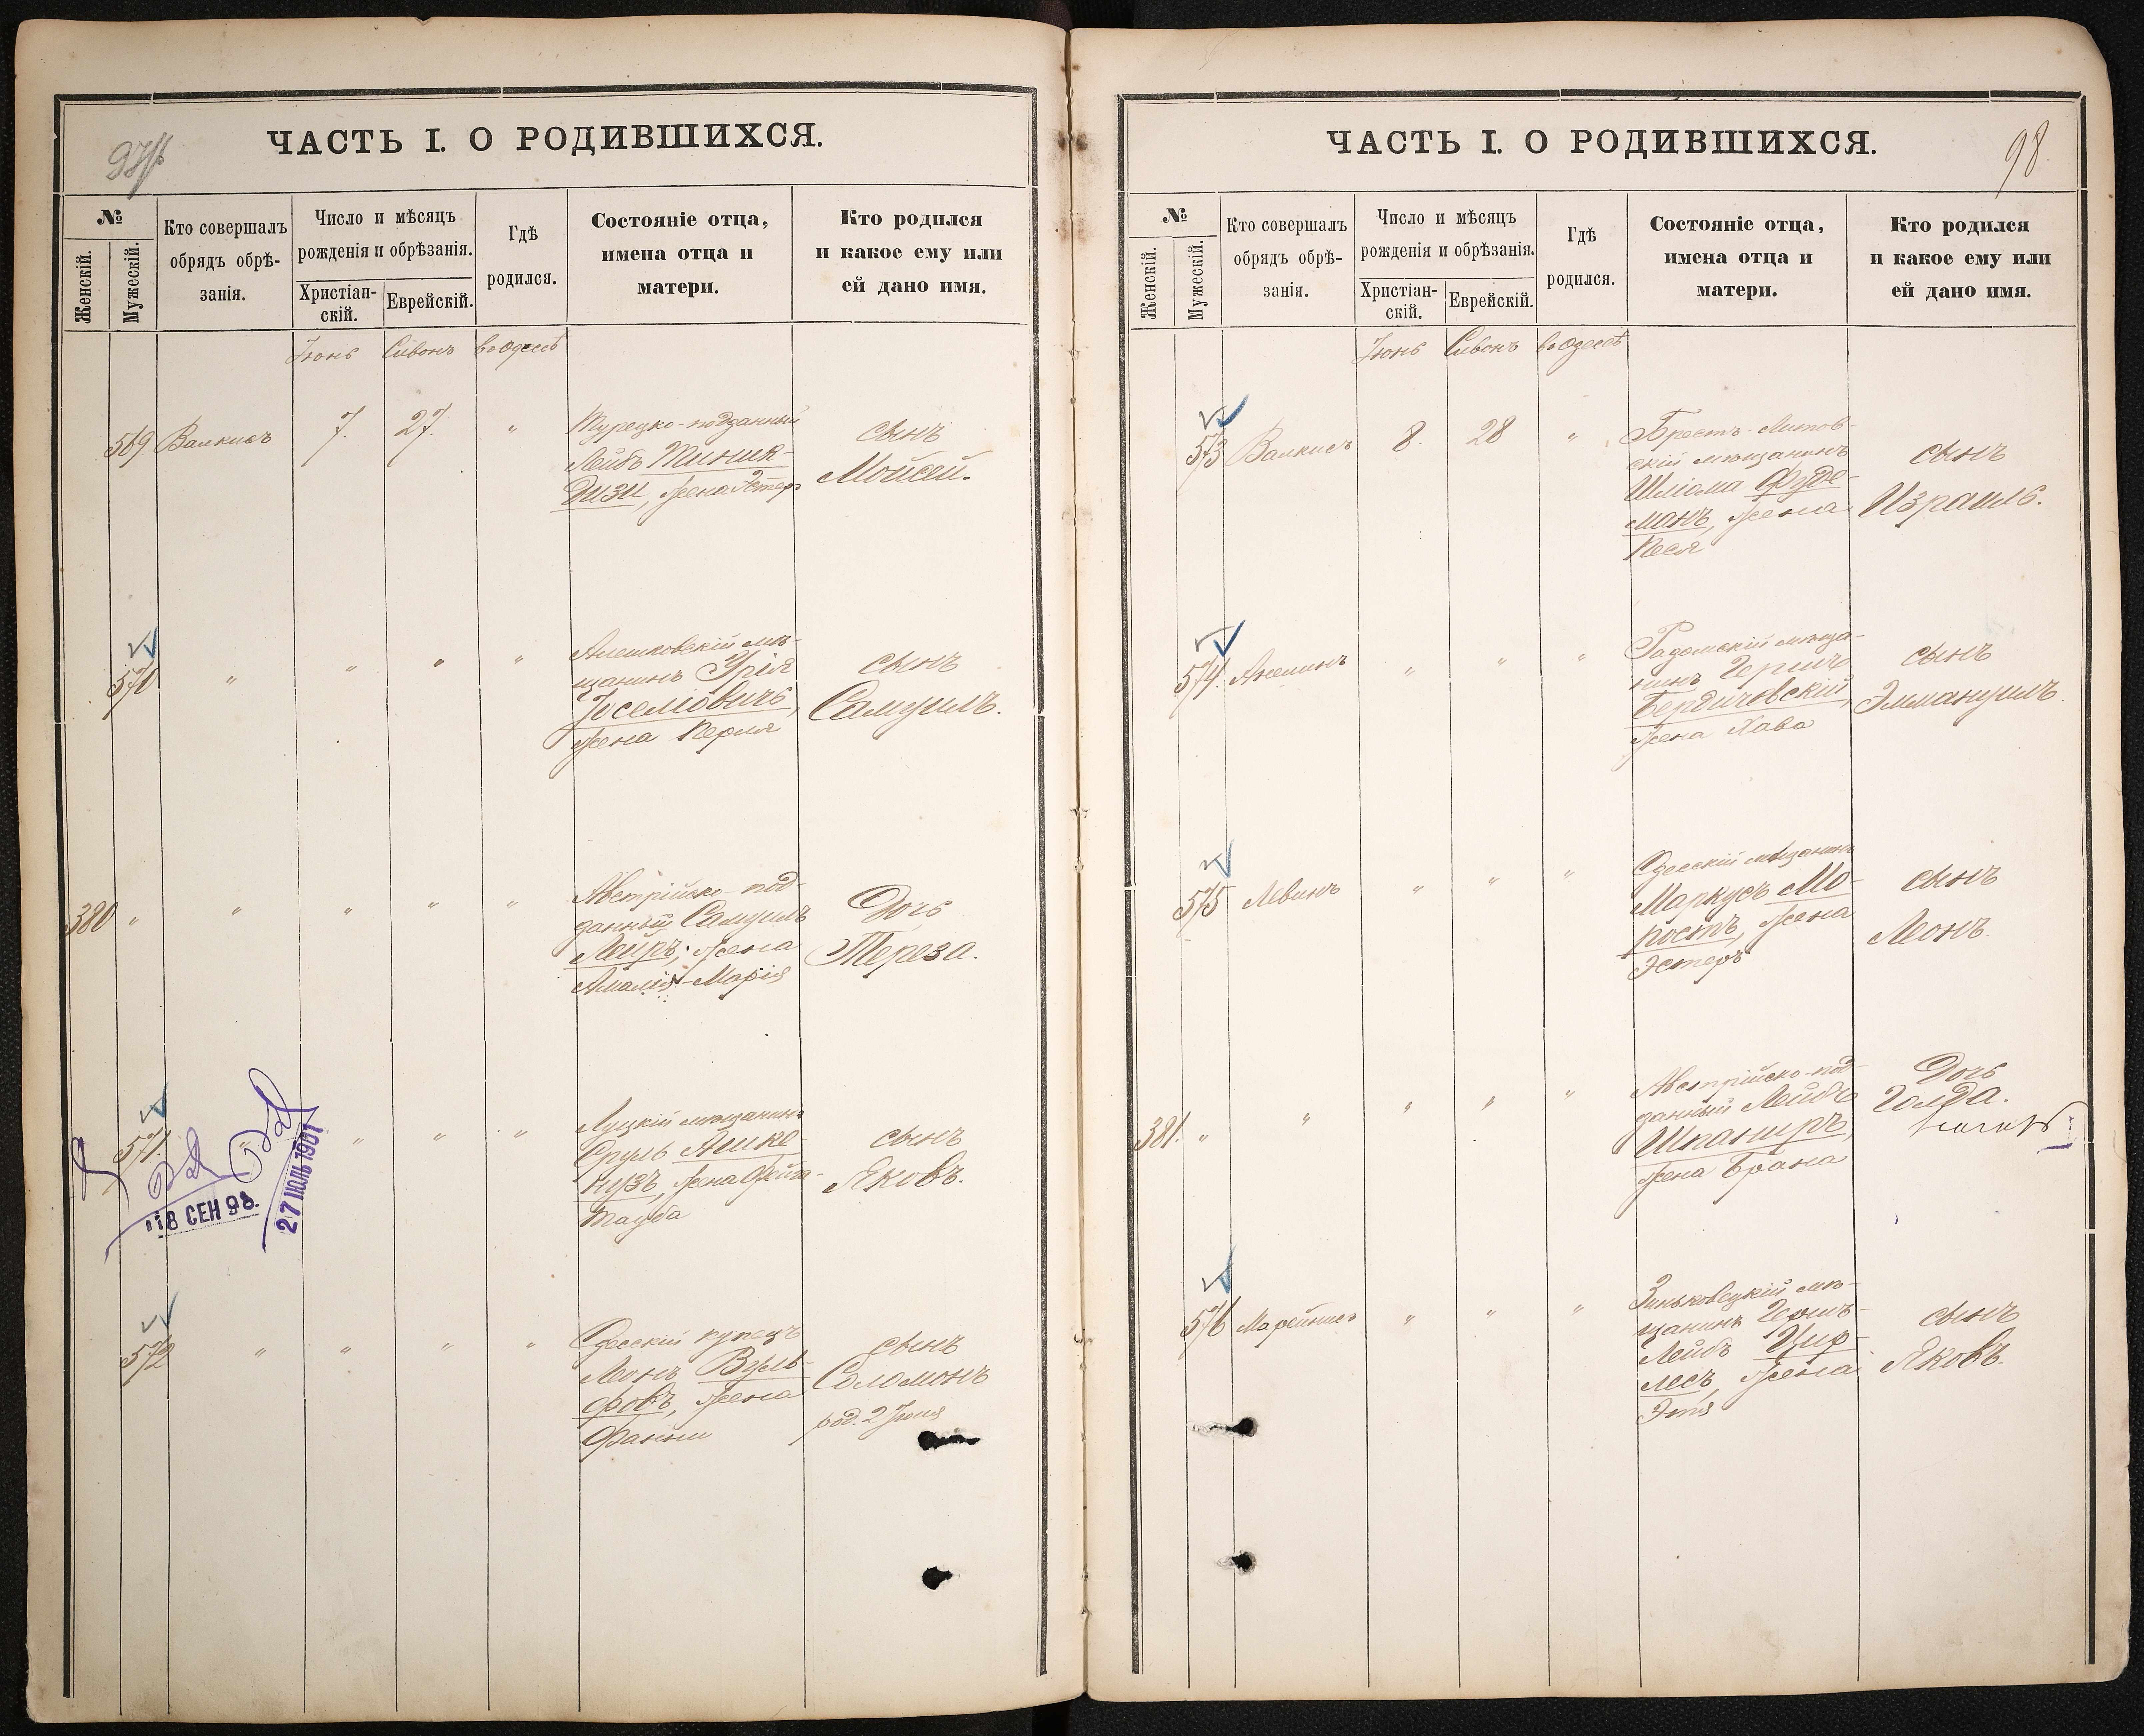 ЧАСТЬ I. О РОДИВШИХСЯ.
№
Женскій.
Мужескій.
Кто совершалъ
обрядъ обрѣ-
занія.
Число и мѣсяцъ
рожденія и обрѣзанія.
Христіан-
скій.
Еврейскій.
Гдѣ
родился.
Состояніе отца,
имена отца и
матери.
Кто родился
и какое ему или
ей дано имя.
Іюнь Сивонъ въ Одессѣ
569 Валкисъ 7. 27. "
Турецко-подданный
Лейбъ Тиник-
дизи, жена Эстеръ
сынъ
Мойсей.
570 " " " "
Алешковскій мѣ-
щанинъ Урія
Іоселіовичъ,
жена Перля
сынъ
Самуилъ.
380 " " " " "
Австрійско-под-
данный Самуилъ
Лейръ, жена
Амалія-Марія
Дочь
Тереза.
571. " " " "
Луцкій мѣщанинъ
Сруль Ашке-
нузъ, жена Фейга-
Тауба
сынъ
Яковъ.
18 СЕН 98.
27 ІЮЛЬ 1901
572 " " " "
Одесскій купецъ
Леонъ Вуль-
фовъ, жена
Фанни
сынъ
Соломонъ
род. 2 Іюня
ЧАСТЬ I. О РОДИВШИХСЯ.
98.
№
Женскій.
Мужескій.
Кто совершалъ
обрядъ обрѣ-
занія.
Число и мѣсяцъ
рожденія и обрѣзанія.
Христіан-
скій.
Еврейскій.
Гдѣ
родился.
Состояніе отца,
имена отца и
матери.
Кто родился
и какое ему или
ей дано имя.
Іюнь Сивонъ въ Одессѣ
573 Валкисъ 8. 28 "
Брестъ-Литов-
скій мѣщанинъ
Шліома Фуде-
манъ, жена
Песя
сынъ
Израиль.
574. " " "
Радомскій мѣща-
нинъ Гершъ
Бердичовскій,
жена Хава
сынъ
Эммануилъ.
575 Левинъ " " "
Одесскій мѣщанинъ
Маркусъ Мо-
ростъ, жена
Эстеръ
сынъ
Леонъ.
381. " " " " "
Австрійско-под-
данный Лейбъ
Шпаниръ,
жена Брана
Дочь
Голда.
576 " " "
Зиньковецкій мѣ-
щанинъ Гершъ-
Лейбъ Цир-
лесъ, жена
Этя
сынъ
Яковъ.